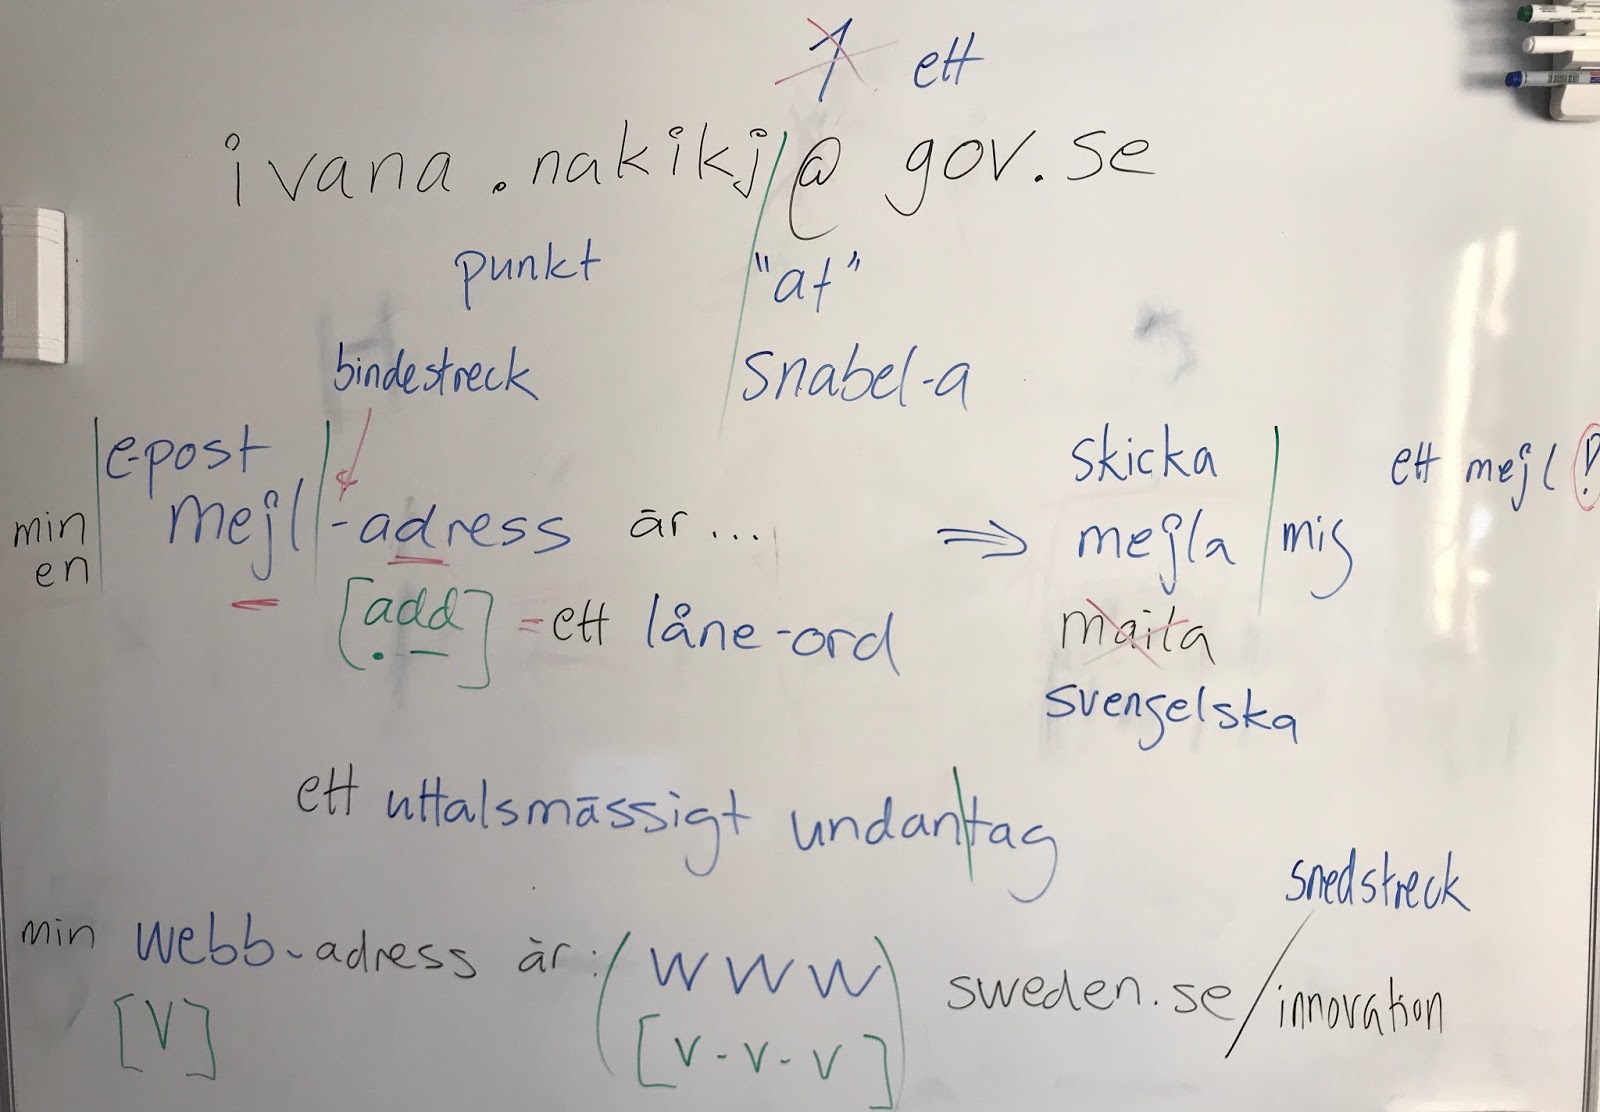 1 ett
ivana.nakikj@gov.se
punkt "at"
bindestreck snabel-a
e-post skicka ett mejl!
min mejl-adress är... ⇒ mejla mig
en
[add] = ett låne-ord maila
svengelska
ett uttalsmässigt undantag
snedstreck
min webb-adress är: (WWW) sweden.se/innovation
[V] [v-v-v]